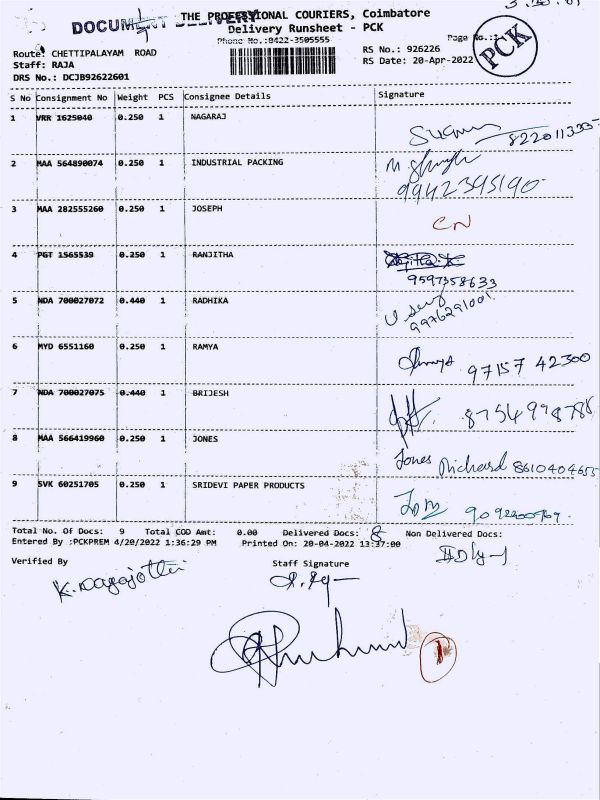 DOCUMENT DELIVERY
THE PROFESSIONAL COURIERS, Coimbatore
Delivery Runsheet - PCK
Phone No.:0422-3505555
Page No.:1
PCK
Route: CHETTIPALAYAM ROAD
RS No.: 926226
Staff: RAJA
RS Date: 20-Apr-2022
DRS No.: DCJB92622601
S No Consignment No Weight PCS Consignee Details Signature
1 VRR 1625040 0.250 1 NAGARAJ
8220113357
2 MAA 564890074 0.250 1 INDUSTRIAL PACKING
9942395190
3 MAA 282555260 0.250 1 JOSEPH CN
4 PGT 1565539 0.250 1 RANJITHA
9597358633
5 NDA 700027072 0.440 1 RADHIKA
9976291001
6 MYD 6551160 0.250 1 RAMYA
97157 42300
7 NDA 700027075 0.440 1 BRIJESH
8 MAA 566419960 0.250 1 JONES
Jones Richard 8610404655
9 SVK 60251705 0.250 1 SRIDEVI PAPER PRODUCTS
Total No. Of Docs: 9 Total COD Amt: 0.00 Delivered Docs: 8 Non Delivered Docs:
Entered By :PCKPREM 4/20/2022 1:36:29 PM Printed On: 20-04-2022 13:37:00
Verified By Staff Signature
1